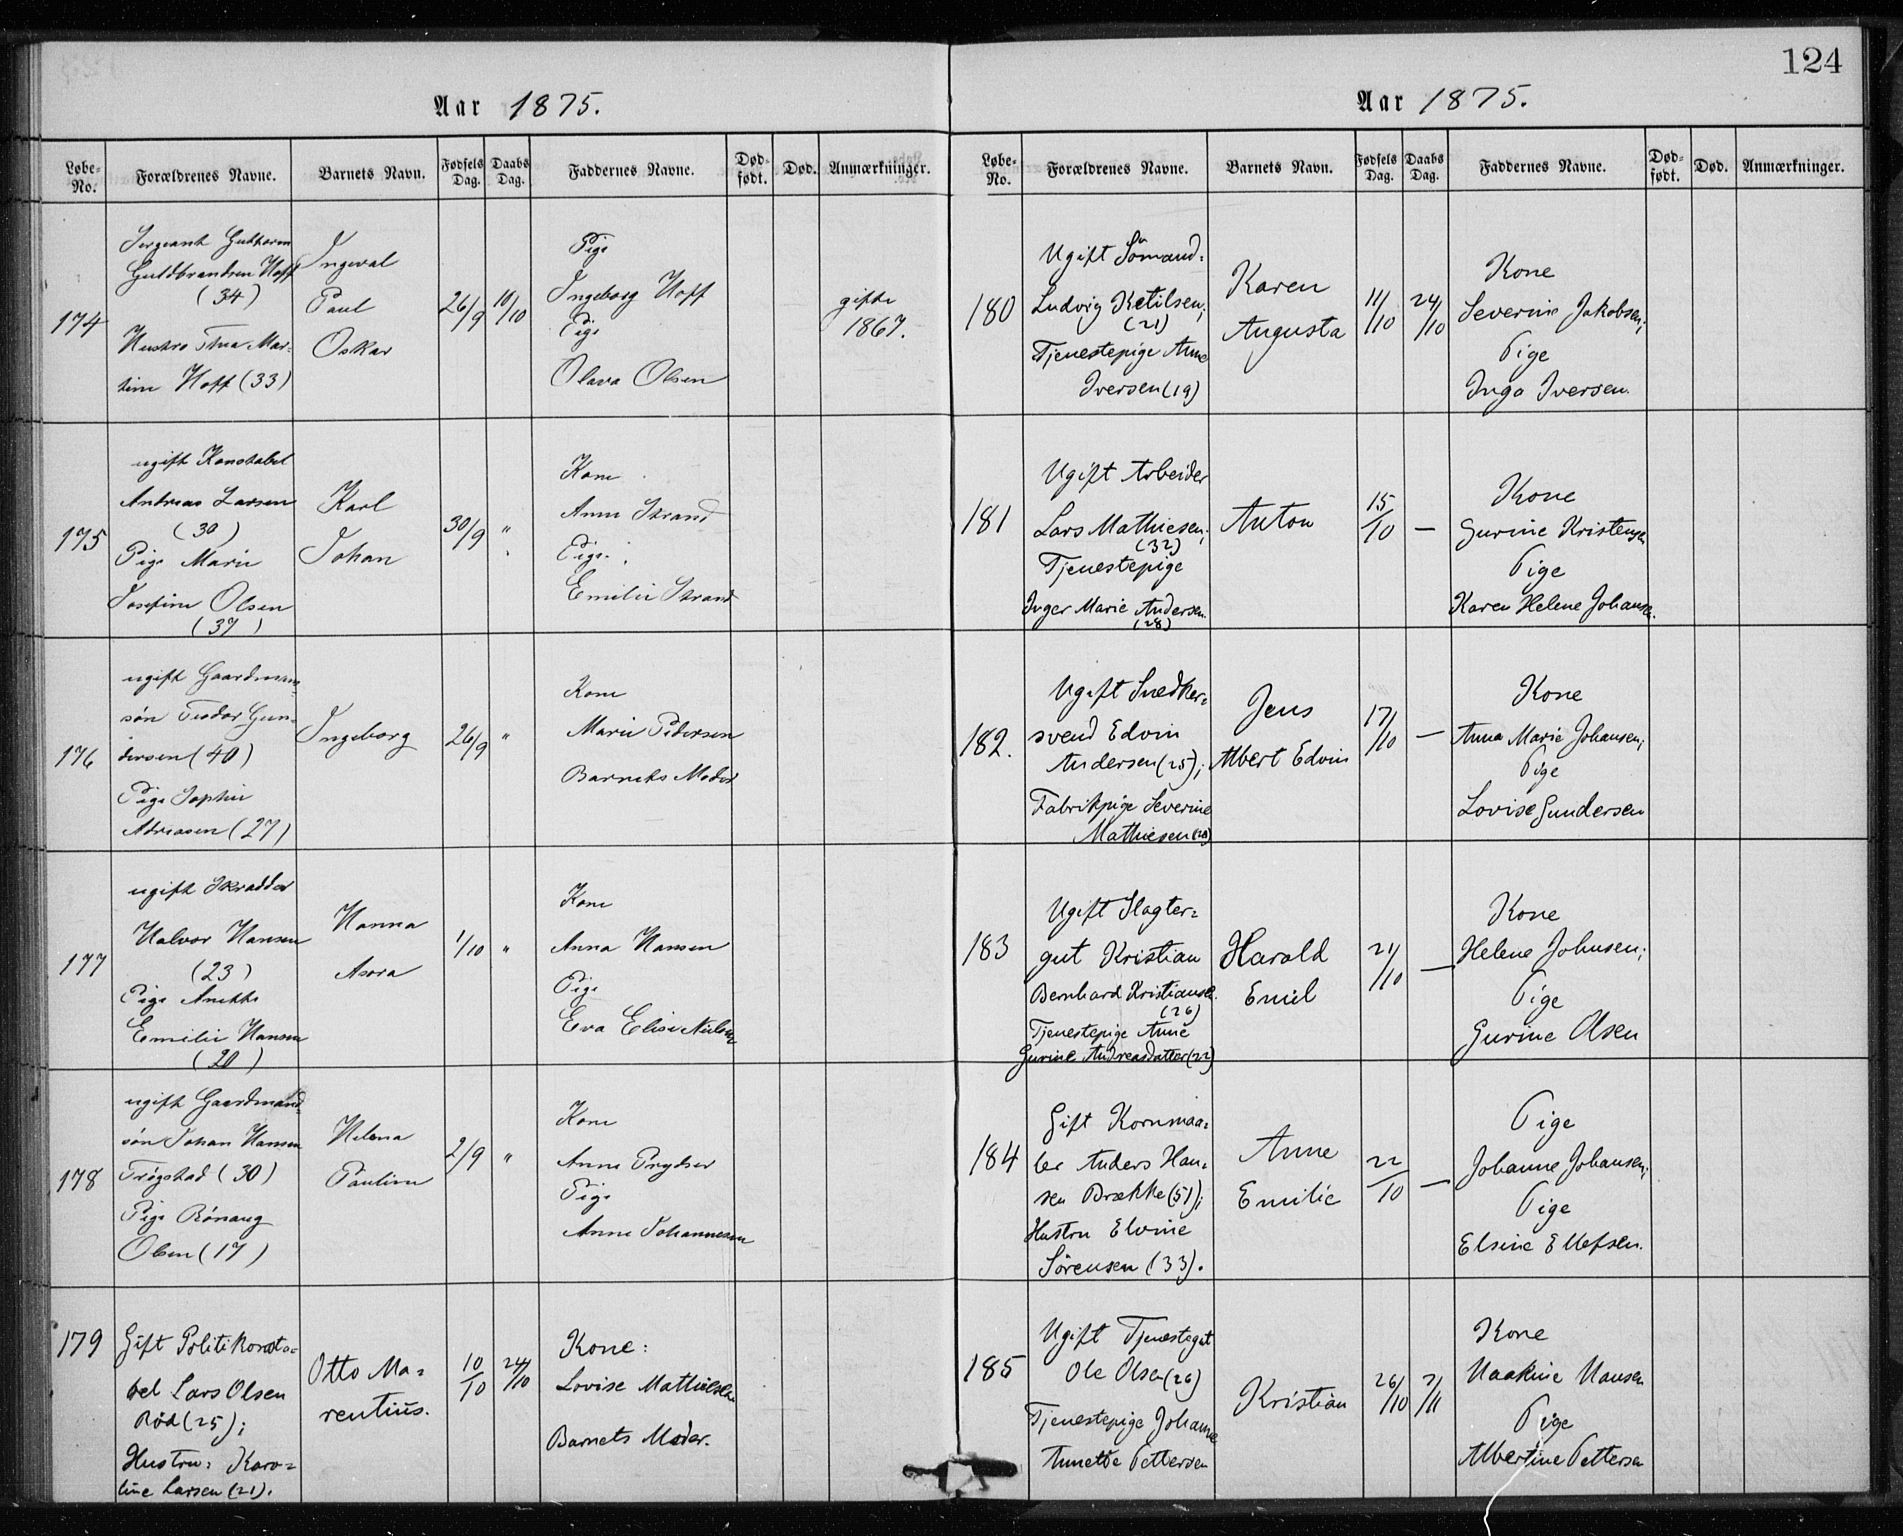 124
Aar 1875.
Løbe-No. Forældrenes Navne. Barnets Navn. Fødsels Dag. Daabs Dag. Faddernes Navne. Død-født. Død. Anmærkninger.
174
Sergeant Guthorm
Guldbrandsen Hoff
(34)
Hustro Thea Mar-
tine Hoff (33)
Ingeval
Paul
Oskar
26/9
10/10
Pige
Ingeborg Hoff
Pige
Olava Olsen
gifte
1867.
175
ugift Konstabel
Andreas Larsen
(30)
Pige Marie
Josefine Olsen
(37)
Karl
Johan
30/9
"
Kone
Anne Strand
Pige
Emilie Strand
176
ugift Gaardmans-
søn Teodor Gun-
dersen (40)
Pige Sophie
Adriasen (27)
Ingeborg
26/9
"
Kone
Marie Pedersen
Barnets Moder
177
ugift Skrædder
Halvor Hansen
(23)
Pige Anette
Emilie Hansen
(20)
Hanna
Asora
1/10
"
Kone
Anna Hansen
Pige
Eva Elise Nielsen
178
ugift Gaardmand-
søn Johan Hansen
Trøgstad (30)
Pige Rønaug
Olsen (17)
Helena
Pauline
2/9
"
Kone
Anne Prydser
Pige
Anne Johannesen
179
Gift Politikonsta-
bel Lars Olsen
Rød (25);
Hustru: Karo-
line Larsen (21).
Otto Ma-
rentius.
10/10
24/10
Kone:
Lovise Mathiesen
Barnets Moder.
Aar 1875.
Løbe-No. Forældrenes Navne. Barnets Navn. Fødsels Dag. Daabs Dag. Faddernes Navne. Død-født. Død. Anmærkninger.
180
Ugift Sømand:
Ludvig Ketilsen;
(21)
Tjenestepige Anne
Iversen (19)
Karen
Augusta
11/10
24/10
Kone
Severine Jakobsen;
Pige
Inga Iversen.
181
Ugift Arbeider
Lars Mathiesen;
(32)
Tjenestepige
Inger Marie Andersen
(28)
Anton
15/10
—
Kone
Gurine Kristensen
Pige
Karen Helene Johansen.
182.
Ugift Snedker-
svend Edvin
Andersen (25);
Fabrikpige Severine
Mathiesen (28)
Jens
Albert Edvin
17/10
—
Kone
Anna Marie Johansen;
Pige
Lovise Gundersen
183
Ugift Slagter-
gut Kristian
Bernhard Kristiansen.
(26)
Tjenestepige Anne
Gurine Andreasdatter (22)
Harald
Emil
21/10
—
Kone
Helene Johnsen;
Pige
Gurine Olsen
184
Gift Kornmaa-
ler Anders Han-
sen Brække (51);
Hustru Elvine
Sørensen (33).
Anne
Emilie
22/10
—
Pige
Johanne Johansen;
Pige
Elsine Ellefsen.
185
Ugift Tjenestegut
Ole Olsen (26)
Tjenestepige Johanne
Annette Pettersen
Kristian
26/10
7/11
Kone
Haakine Hansen
Pige
Albertine Pettersen